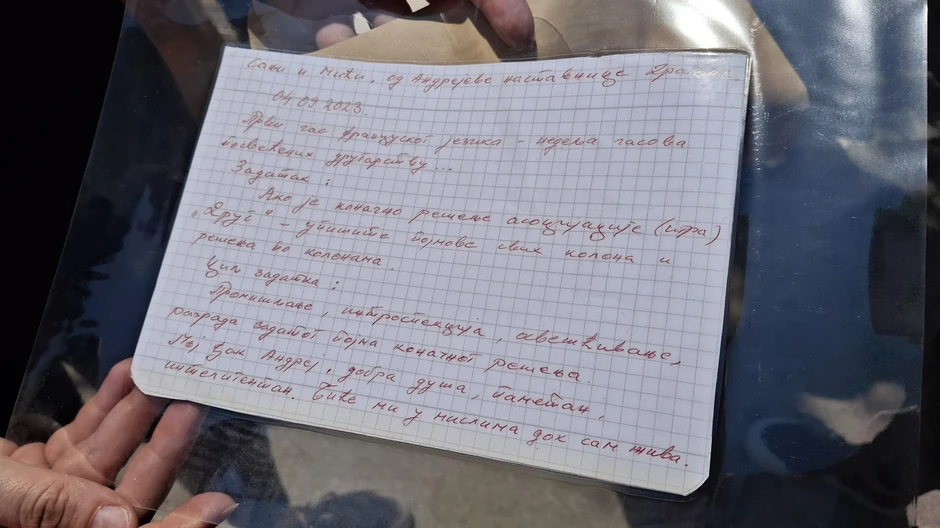 Сањи и Мики, од Андрејеве наставнице Драгане
04.09.2023.
Први час француског језика - недеља часова
посвећених другарству...
Задатак:
Ако је коначно решење асоцијације (игра)
„Друг" - упишите појмове свих колона и
решења по колонама.
Циљ задатка:
Промишљање, интроспекција, освешћивање,
разрада задатог појма коначног решења.
Мој ђак Андреј, добра душа, паметан,
интелигентан. Биће ми у мислима док сам жива.